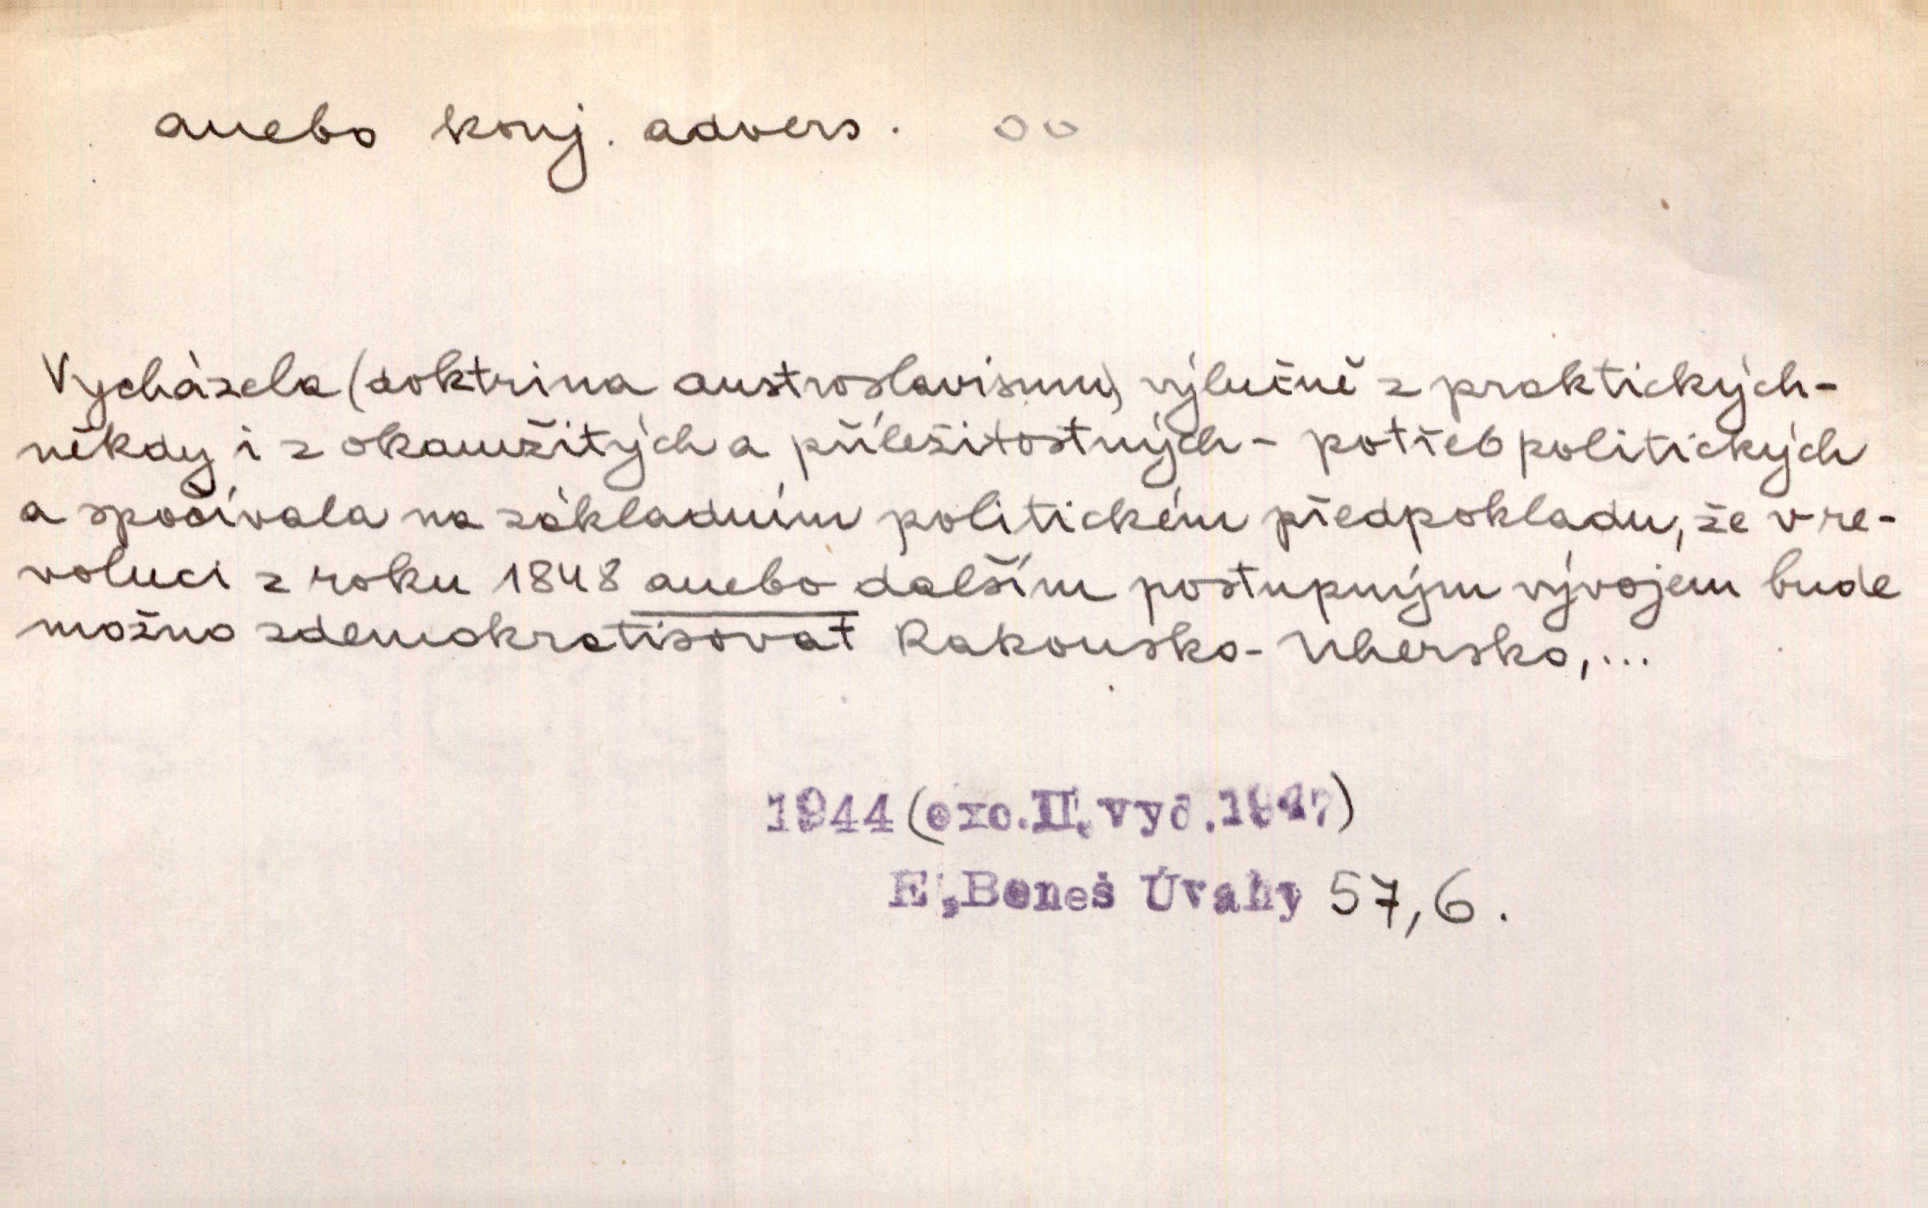 anebo konj. advers.
Vycházela (doktrina austroslavismu) výlučně z praktických -
někdy i z okamžitých a příležitostných - potřeb politických
a spočívala na základním politickém předpokladu, že v re-
voluci z roku 1848 anebo dalším postupným vývojem bude
možno zdemokratisovat Rakousko-Uhersko, ...
1944 (exc. II. vyd. 1947)
E. Beneš Úvahy 57,6.